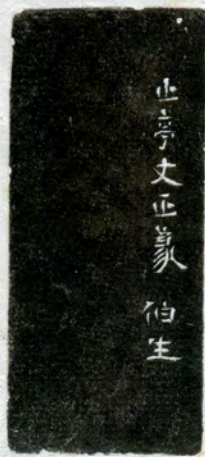 止亭丈正篆 伯生